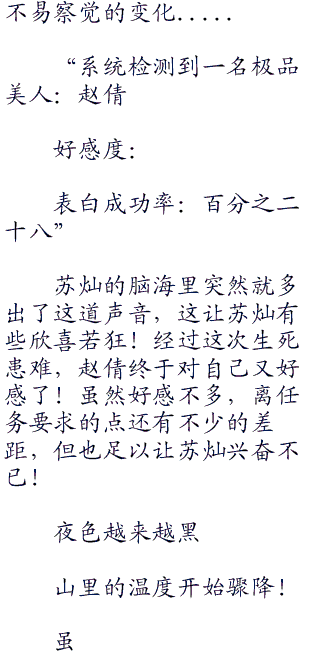 不易察觉的变化.....
“系统检测到一名极品
美人：赵倩
好感度：
表白成功率：百分之二
十八”
苏灿的脑海里突然就多
出了这道声音，这让苏灿有
些欣喜若狂！经过这次生死
患难，赵倩终于对自己又好
感了！虽然好感不多，离任
务要求的点还有不少的差
距，但也足以让苏灿兴奋不
已！
夜色越来越黑
山里的温度开始骤降！
虽